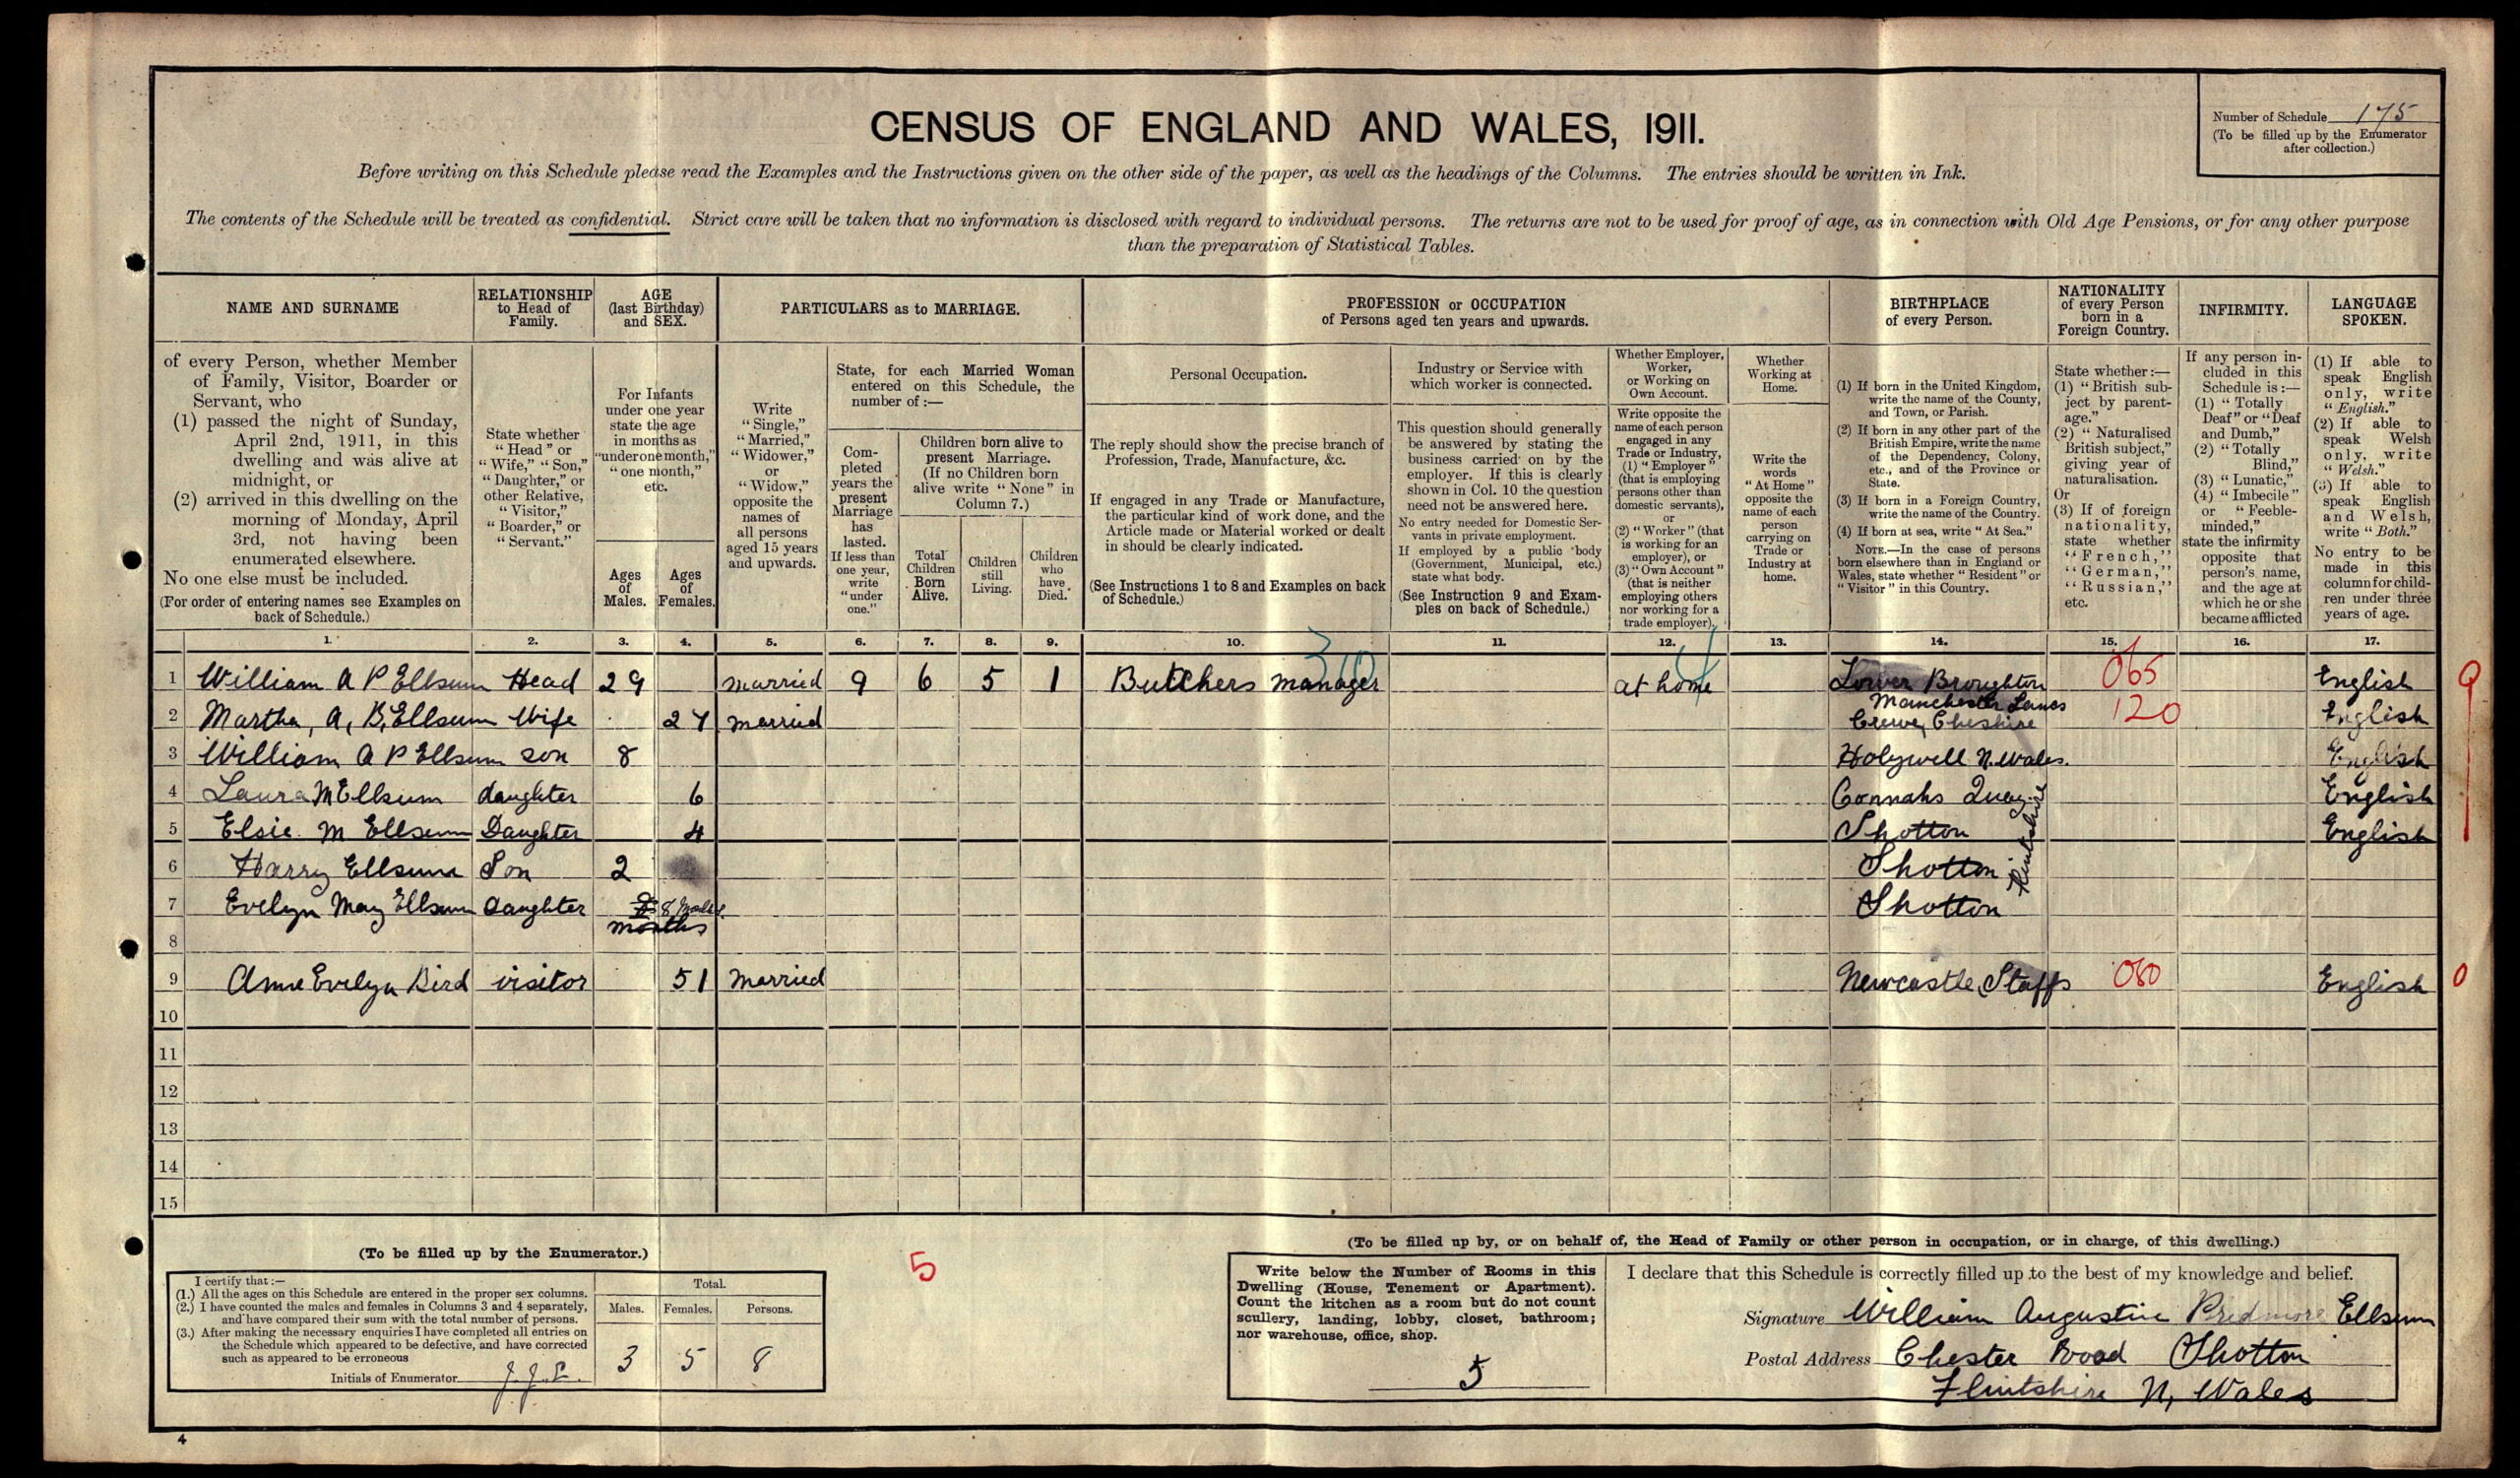 CENSUS OF ENGLAND AND WALES, 1911.
Number of Schedule 175
(To be filled up by the Enumerator
after collection.)
Before writing on this Schedule please read the Examples and the Instructions given on the other side of the paper, as well as the headings of the Columns. The entries should be written in Ink.
The contents of the Schedule will be treated as confidential. Strict care will be taken that no information is disclosed with regard to individual persons. The returns are not to be used for proof of age, as in connection with Old Age Pensions, or for any other purpose
than the preparation of Statistical Tables.
NAME AND SURNAME
RELATIONSHIP
to Head of
Family.
AGE
(last Birthday)
and SEX.
PARTICULARS as to MARRIAGE.
PROFESSION or OCCUPATION
of Persons aged ten years and upwards.
BIRTHPLACE
of every Person.
NATIONALITY
of every Person
born in a
Foreign Country.
INFIRMITY.
LANGUAGE
SPOKEN.
of every Person, whether Member
of Family, Visitor, Boarder or
Servant, who
(1) passed the night of Sunday,
April 2nd, 1911, in this
dwelling and was alive at
midnight, or
(2) arrived in this dwelling on the
morning of Monday, April
3rd, not having been
enumerated elsewhere.
No one else must be included.
(For order of entering names see Examples on
back of Schedule.)
State whether
"Head" or
"Wife," "Son,"
"Daughter," or
other Relative,
"Visitor,"
"Boarder," or
"Servant."
For Infants
under one year
state the age
in months as
"under one month,"
"one month,"
etc.
Ages
of
Males.
Ages
of
Females.
Write
"Single,"
"Married,"
"Widower,"
or
"Widow,"
opposite the
names of
all persons
aged 15 years
and upwards.
State, for each Married Woman
entered on this Schedule, the
number of :—
Com-
pleted
years the
present
Marriage
has
lasted.
If less than
one year,
write
"under
one."
Children born alive to
present Marriage.
(If no Children born
alive write "None" in
Column 7.)
Total
Children
Born
Alive.
Children
still
Living.
Children
who
have
Died.
Personal Occupation.
The reply should show the precise branch of
Profession, Trade, Manufacture, &c.
If engaged in any Trade or Manufacture,
the particular kind of work done, and the
Article made or Material worked or dealt
in should be clearly indicated.
(See Instructions 1 to 8 and Examples on back
of Schedule.)
Industry or Service with
which worker is connected.
This question should generally
be answered by stating the
business carried on by the
employer. If this is clearly
shown in Col. 10 the question
need not be answered here.
No entry needed for Domestic Ser-
vants in private employment.
If employed by a public body
(Government, Municipal, etc.)
state what body.
(See Instruction 9 and Exam-
ples on back of Schedule.)
Whether Employer,
Worker,
or Working on
Own Account.
Write opposite the
name of each person
engaged in any
Trade or Industry,
(1) "Employer"
(that is employing
persons other than
domestic servants),
or
(2) "Worker" (that
is working for an
employer), or
(3) "Own Account"
(that is neither
employing others
nor working for a
trade employer).
Whether
Working at
Home.
Write the
words
"At Home"
opposite the
name of each
person
carrying on
Trade or
Industry at
home.
(1) If born in the United Kingdom,
write the name of the County,
and Town, or Parish.
(2) If born in any other part of the
British Empire, write the name
of the Dependency, Colony,
etc., and of the Province or
State.
(3) If born in a Foreign Country,
write the name of the Country.
(4) If born at sea, write "At Sea."
NOTE.—In the case of persons
born elsewhere than in England or
Wales, state whether "Resident" or
"Visitor" in this Country.
State whether :—
(1) "British sub-
ject by parent-
age."
(2) "Naturalised
British subject,"
giving year of
naturalisation.
Or
(3) If of foreign
nationality,
state whether
"French,"
"German,"
"Russian,"
etc.
If any person in-
cluded in this
Schedule is :—
(1) "Totally
Deaf" or "Deaf
and Dumb,"
(2) "Totally
Blind,"
(3) "Lunatic,"
(4) "Imbecile"
or "Feeble-
minded,"
state the infirmity
opposite that
person's name,
and the age at
which he or she
became afflicted
(1) If able to
speak English
only, write
"English."
(2) If able to
speak Welsh
only, write
"Welsh."
(3) If able to
speak English
and Welsh,
write "Both."
No entry to be
made in this
column for child-
ren under three
years of age.
1. 2. 3. 4. 5. 6. 7. 8. 9. 10. 11. 12. 13. 14. 15. 16. 17.
1 William A P Ellsum Head 29 married 9 6 5 1 Butchers manager 310 at home Lower Broughton 065 English
Manchester Lancs
2 Martha, A, B, Ellsum Wife 27 married Crewe, Cheshire 120 English
3 William A P Ellsum son 8 Holywell N. Wales. English
4 Laura M Ellsum daughter 6 Connahs Quay English
5 Elsie M Ellsum Daughter 4 Shotton English
6 Harry Ellsum Son 2 Shotton
Flintshire
7 Evelyn May Ellsum daughter 8 months Shotton
8
9 Anne Evelyn Bird visitor 51 married Newcastle, Staffs 080 English 0
10
11
12
13
14
15
(To be filled up by the Enumerator.)
I certify that :—
(1.) All the ages on this Schedule are entered in the proper sex columns.
(2.) I have counted the males and females in Columns 3 and 4 separately,
and have compared their sum with the total number of persons.
(3.) After making the necessary enquiries I have completed all entries on
the Schedule which appeared to be defective, and have corrected
such as appeared to be erroneous
Initials of Enumerator
Total.
Males. Females. Persons.
3 5 8
5
(To be filled up by, or on behalf of, the Head of Family or other person in occupation, or in charge, of this dwelling.)
Write below the Number of Rooms in this
Dwelling (House, Tenement or Apartment).
Count the kitchen as a room but do not count
scullery, landing, lobby, closet, bathroom;
nor warehouse, office, shop.
5
I declare that this Schedule is correctly filled up to the best of my knowledge and belief.
Signature William Augustin Pridmore Ellsum
Postal Address Chester Road Shotton
Flintshire N, Wales
4